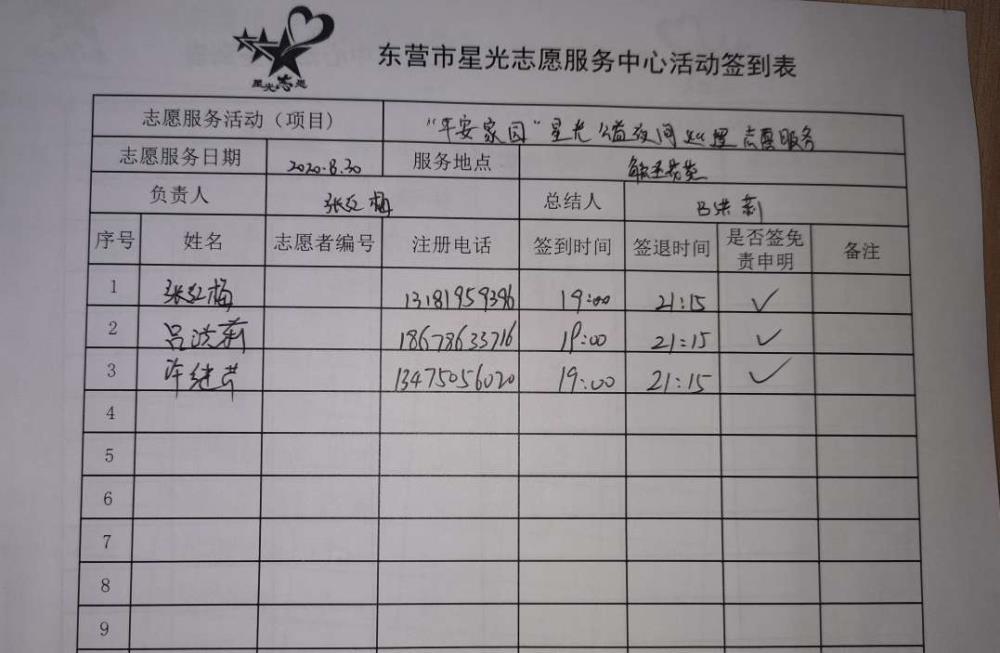 星光志愿
东营市星光志愿服务中心活动签到表
志愿服务活动（项目） “平安家园”星光公益夜间巡逻志愿服务
志愿服务日期 2020.8.30 服务地点
负责人 张红梅 总结人 吕洪莉
序号 姓名 志愿者编号 注册电话 签到时间 签退时间 是否签免责申明 备注
1 张红梅 13181959396 19:00 21:15 ✓
2 吕洪莉 18678633716 19:00 21:15 ✓
3 13475056020 19:00 21:15 ✓
4
5
6
7
8
9